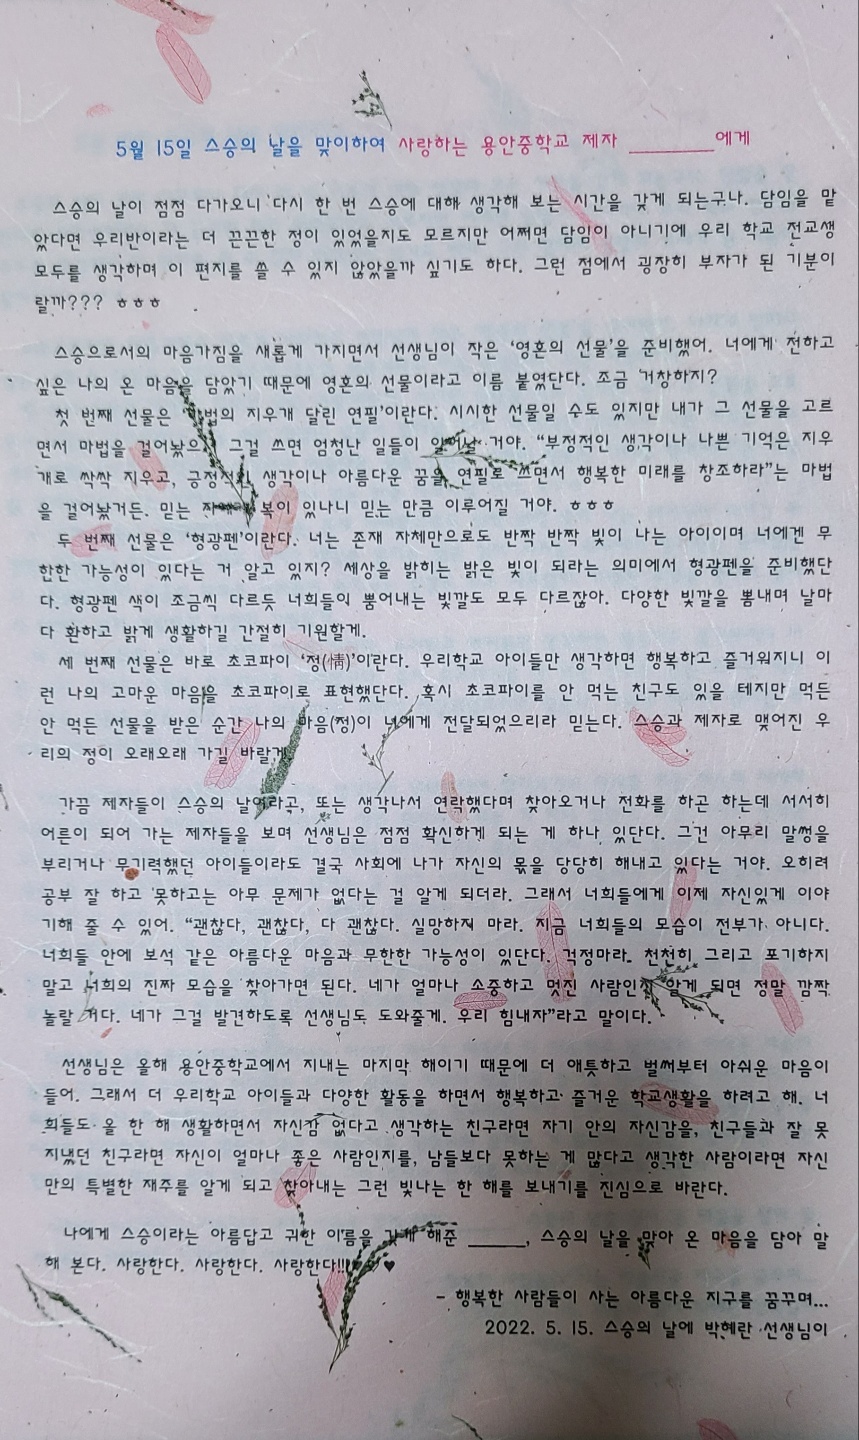 5월 15일 스승의 날을 맞이하여 사랑하는 용안중학교 제자 ________에게
스승의 날이 점점 다가오니 다시 한 번 스승에 대해 생각해 보는 시간을 갖게 되는구나. 담임을 맡
았다면 우리반이라는 더 끈끈한 정이 있었을지도 모르지만 어쩌면 담임이 아니기에 우리 학교 전교생
모두를 생각하며 이 편지를 쓸 수 있지 않았을까 싶기도 하다. 그런 점에서 굉장히 부자가 된 기분이
랄까??? ㅎㅎㅎ
스승으로서의 마음가짐을 새롭게 가지면서 선생님이 작은 ‘영혼의 선물’을 준비했어. 너에게 전하고
싶은 나의 온 마음을 담았기 때문에 영혼의 선물이라고 이름 붙였단다. 조금 거창하지?
첫 번째 선물은 ‘마법의 지우개 달린 연필’이란다. 시시한 선물일 수도 있지만 내가 그 선물을 고르
면서 마법을 걸어놨으 그걸 쓰면 엄청난 일들이 일어날 거야. “부정적인 생각이나 나쁜 기억은 지우
개로 싹싹 지우고, 긍정적인 생각이나 아름다운 꿈을 연필로 쓰면서 행복한 미래를 창조하라”는 마법
을 걸어놨거든. 믿는 자에게 복이 있나니 믿는 만큼 이루어질 거야. ㅎㅎㅎ
두 번째 선물은 ‘형광펜’이란다. 너는 존재 자체만으로도 반짝 반짝 빛이 나는 아이이며 너에겐 무
한한 가능성이 있다는 거 알고 있지? 세상을 밝히는 밝은 빛이 되라는 의미에서 형광펜을 준비했단
다. 형광펜 색이 조금씩 다르듯 너희들이 뿜어내는 빛깔도 모두 다르잖아. 다양한 빛깔을 뽐내며 날마
다 환하고 밝게 생활하길 간절히 기원할게.
세 번째 선물은 바로 초코파이 ‘정(情)’이란다. 우리학교 아이들만 생각하면 행복하고 즐거워지니 이
런 나의 고마운 마음을 초코파이로 표현했단다. 혹시 초코파이를 안 먹는 친구도 있을 테지만 먹든
안 먹든 선물을 받은 순간 나의 마음(정)이 너에게 전달되었으리라 믿는다. 스승과 제자로 맺어진 우
리의 정이 오래오래 가길 바랄게.
가끔 제자들이 스승의 날이라고, 또는 생각나서 연락했다며 찾아오거나 전화를 하곤 하는데 서서히
어른이 되어 가는 제자들을 보며 선생님은 점점 확신하게 되는 게 하나 있단다. 그건 아무리 말썽을
부리거나 무기력했던 아이들이라도 결국 사회에 나가 자신의 몫을 당당히 해내고 있다는 거야. 오히려
공부 잘 하고 못하고는 아무 문제가 없다는 걸 알게 되더라. 그래서 너희들에게 이제 자신있게 이야
기해 줄 수 있어. “괜찮다, 괜찮다, 다 괜찮다. 실망하지 마라. 지금 너희들의 모습이 전부가 아니다.
너희들 안에 보석 같은 아름다운 마음과 무한한 가능성이 있단다. 걱정마라. 천천히 그리고 포기하지
말고 너희의 진짜 모습을 찾아가면 된다. 네가 얼마나 소중하고 멋진 사람인지 알게 되면 정말 깜짝
놀랄 거다. 네가 그걸 발견하도록 선생님도 도와줄게. 우리 힘내자”라고 말이다.
선생님은 올해 용안중학교에서 지내는 마지막 해이기 때문에 더 애틋하고 벌써부터 아쉬운 마음이
들어. 그래서 더 우리학교 아이들과 다양한 활동을 하면서 행복하고 즐거운 학교생활을 하려고 해. 너
희들도 올 한 해 생활하면서 자신감 없다고 생각하는 친구라면 자기 안의 자신감을, 친구들과 잘 못
지냈던 친구라면 자신이 얼마나 좋은 사람인지를, 남들보다 못하는 게 많다고 생각한 사람이라면 자신
만의 특별한 재주를 알게 되고 찾아내는 그런 빛나는 한 해를 보내기를 진심으로 바란다.
나에게 스승이라는 아름답고 귀한 이름을 갖게 해준 ______, 스승의 날을 맞아 온 마음을 담아 말
해 본다. 사랑한다. 사랑한다. 사랑한다!!! ♥
- 행복한 사람들이 사는 아름다운 지구를 꿈꾸며...
2022. 5. 15. 스승의 날에 박혜란 선생님이